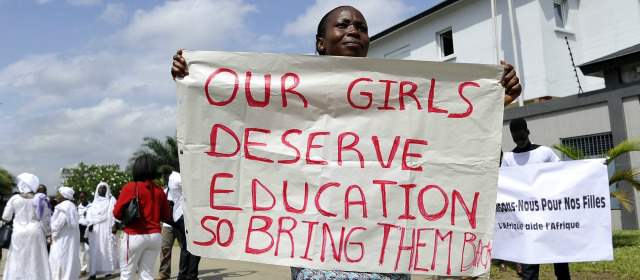 OUR GiRLS
DESERVE
EDUCATION
SO BRiNG THEM BACK
ns-Nous Pour Nos Filles
L'Afrique aide l'Afrique